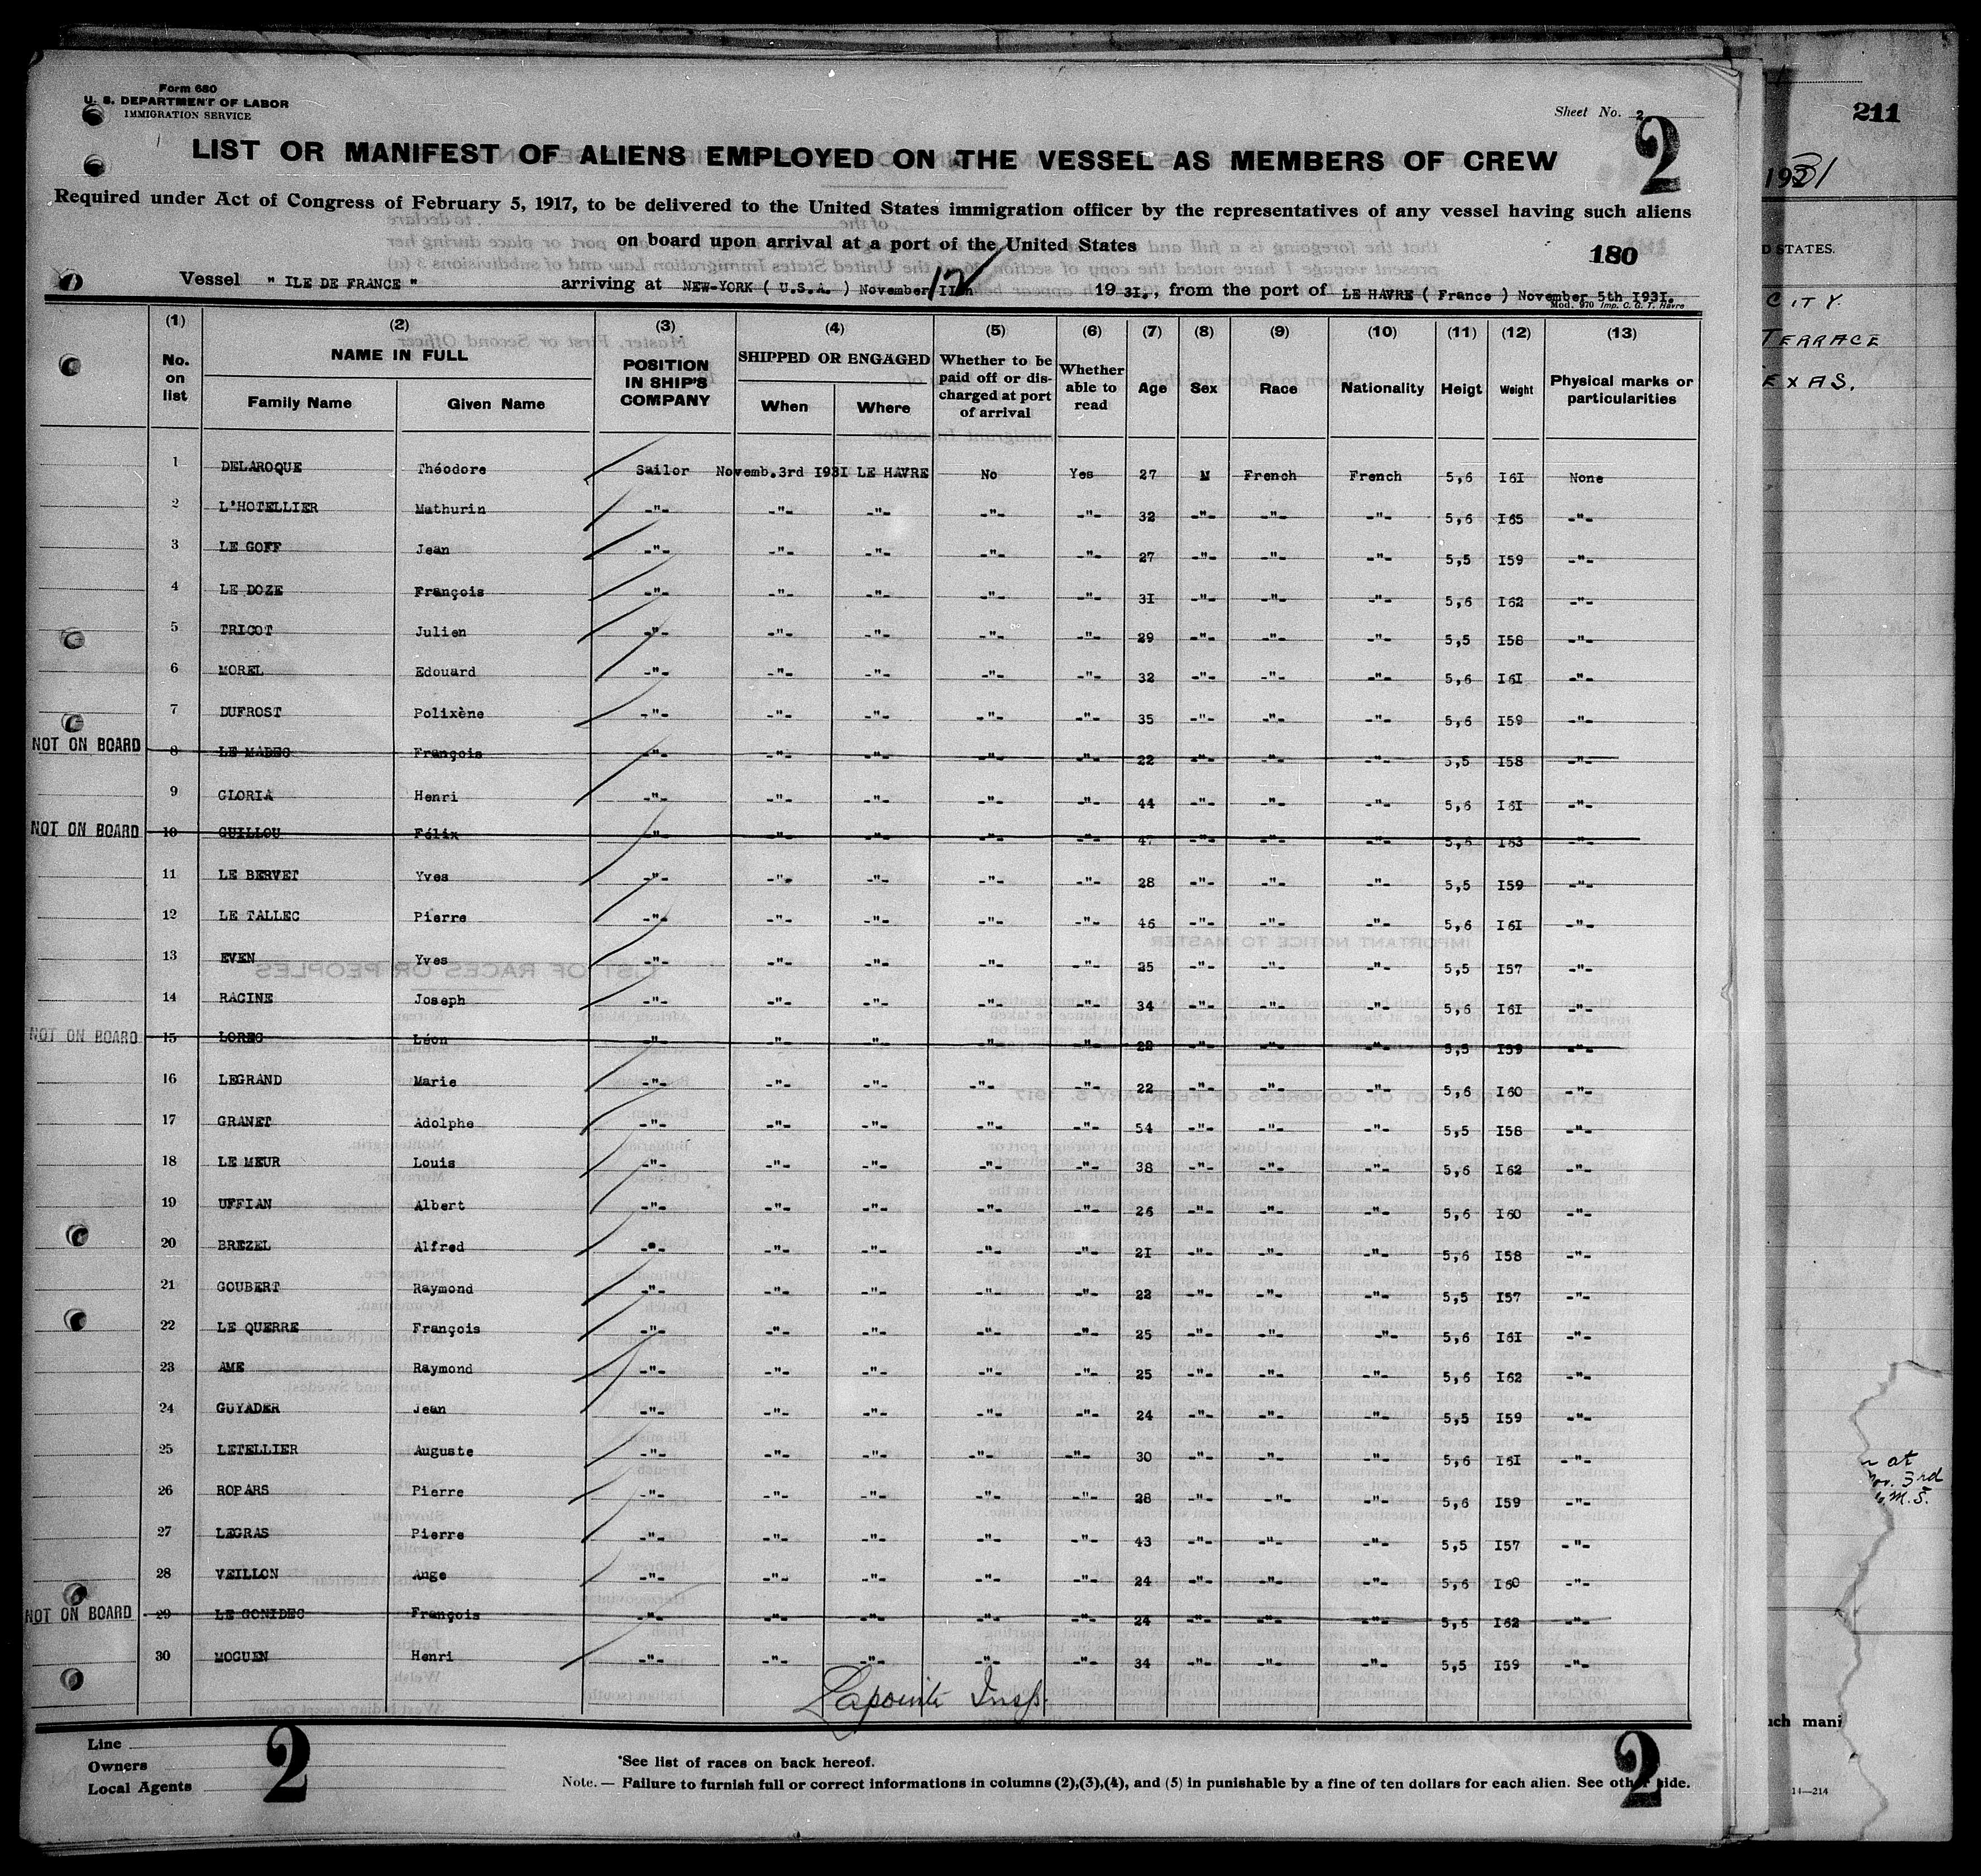 Form 680
U. S. DEPARTMENT OF LABOR
IMMIGRATION SERVICE
Sheet No. 2
2
LIST OR MANIFEST OF ALIENS EMPLOYED ON THE VESSEL AS MEMBERS OF CREW
Required under Act of Congress of February 5, 1917, to be delivered to the United States immigration officer by the representatives of any vessel having such aliens
on board upon arrival at a port of the United States
180
Vessel " ILE DE FRANCE " arriving at NEW-YORK ( U.S.A. ) November 12 1931., from the port of LE HAVRE ( France ) November 5th I93I.
Mod. 970 Imp. C. G. T. Havre
(1) (2) (3) (4) (5) (6) (7) (8) (9) (10) (11) (12) (13)
No. on list NAME IN FULL Family Name Given Name POSITION IN SHIP'S COMPANY SHIPPED OR ENGAGED When Where Whether to be paid off or discharged at port of arrival Whether able to read Age Sex Race Nationality Heigt Weight Physical marks or particularities
1 DELAROQUE Théodore Sailor Novemb.3rd I93I LE HAVRE No Yes 27 M French French 5,6 I6I None
2 L'HOTELLIER Mathurin -"- -"- -"- -"- -"- 32 -"- -"- -"- 5,6 I65 -"-
3 LE GOFF Jean -"- -"- -"- -"- -"- 27 -"- -"- -"- 5,5 I59 -"-
4 LE DOZE François -"- -"- -"- -"- -"- 3I -"- -"- -"- 5,6 I62 -"-
5 TRICOT Julien -"- -"- -"- -"- -"- 29 -"- -"- -"- 5,5 I58 -"-
6 MOREL Edouard -"- -"- -"- -"- -"- 32 -"- -"- -"- 5,6 I6I -"-
7 DUFROST Polixène -"- -"- -"- -"- -"- 35 -"- -"- -"- 5,6 I59 -"-
NOT ON BOARD 8 LE MADEC François -"- -"- -"- -"- -"- 22 -"- -"- -"- 5,5 I58 -"-
9 GLORIA Henri -"- -"- -"- -"- -"- 44 -"- -"- -"- 5,6 I6I -"-
NOT ON BOARD 10 GUILLOU Félix -"- -"- -"- -"- -"- 47 -"- -"- -"- 5,6 I63 -"-
11 LE BERVET Yves -"- -"- -"- -"- -"- 28 -"- -"- -"- 5,5 I59 -"-
12 LE TALLEC Pierre -"- -"- -"- -"- -"- 46 -"- -"- -"- 5,6 I6I -"-
13 EVEN Yves -"- -"- -"- -"- -"- 25 -"- -"- -"- 5,5 I57 -"-
14 RACINE Joseph -"- -"- -"- -"- -"- 34 -"- -"- -"- 5,6 I6I -"-
NOT ON BOARD 15 LOREC Léon -"- -"- -"- -"- -"- 28 -"- -"- -"- 5,5 I59 -"-
16 LEGRAND Marie -"- -"- -"- -"- -"- 22 -"- -"- -"- 5,6 I60 -"-
17 GRANET Adolphe -"- -"- -"- -"- -"- 54 -"- -"- -"- 5,5 I58 -"-
18 LE MEUR Louis -"- -"- -"- -"- -"- 38 -"- -"- -"- 5,6 I62 -"-
19 UFFIAN Albert -"- -"- -"- -"- -"- 26 -"- -"- -"- 5,6 I60 -"-
20 BREZEL Alfred -"- -"- -"- -"- -"- 2I -"- -"- -"- 5,6 I58 -"-
21 GOUBERT Raymond -"- -"- -"- -"- -"- 22 -"- -"- -"- 5,5 I57 -"-
22 LE QUERRE François -"- -"- -"- -"- -"- 25 -"- -"- -"- 5,6 I6I -"-
23 AME Raymond -"- -"- -"- -"- -"- 25 -"- -"- -"- 5,6 I62 -"-
24 GUYADER Jean -"- -"- -"- -"- -"- 24 -"- -"- -"- 5,5 I59 -"-
25 LETELLIER Auguste -"- -"- -"- -"- -"- 30 -"- -"- -"- 5,6 I6I -"-
26 ROPARS Pierre -"- -"- -"- -"- -"- 28 -"- -"- -"- 5,6 I59 -"-
27 LEGRAS Pierre -"- -"- -"- -"- -"- 43 -"- -"- -"- 5,5 I57 -"-
28 VEILLON Ange -"- -"- -"- -"- -"- 24 -"- -"- -"- 5,6 I60 -"-
NOT ON BOARD 29 LE GONIDEC François -"- -"- -"- -"- -"- 24 -"- -"- -"- 5,6 I62 -"-
30 MOGUEN Henri -"- -"- -"- -"- -"- 34 -"- -"- -"- 5,5 I59 -"-
Lapointe Insp.
Line
Owners
Local Agents
2
*See list of races on back hereof.
Note. — Failure to furnish full or correct informations in columns (2),(3),(4), and (5) in punishable by a fine of ten dollars for each alien. See other side.
2
211
1931
D STATES.
CITY.
TERRACE
EXAS.
at
3rd
M.S.
uch mani
14—214